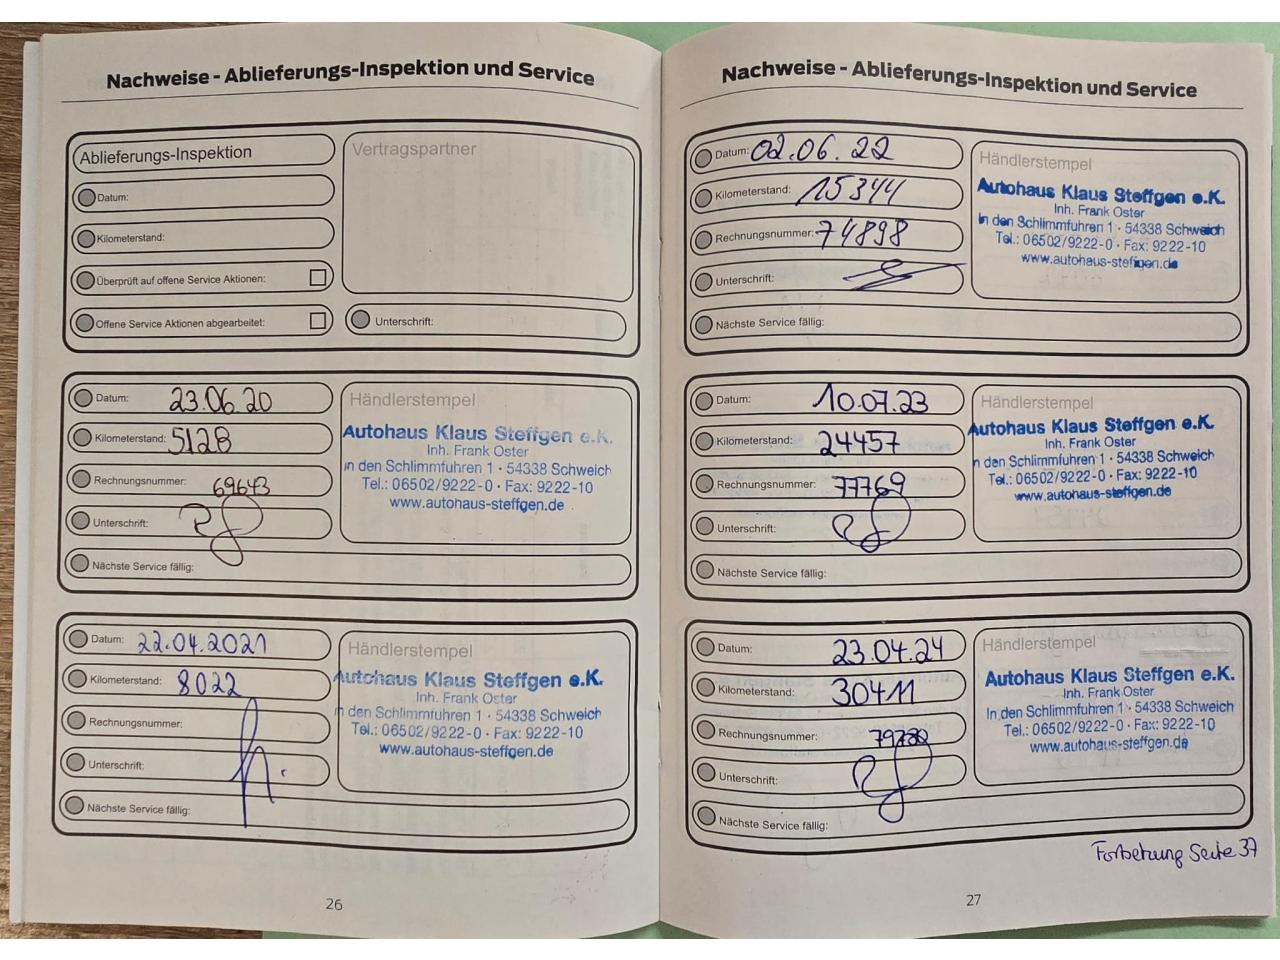 Nachweise - Ablieferungs-Inspektion und Service
Ablieferungs-Inspektion
Datum:
Kilometerstand:
Überprüft auf offene Service Aktionen:
Offene Service Aktionen abgearbeitet:
Vertragspartner
Unterschrift:
Datum: 23.06.20
Kilometerstand: 5128
Rechnungsnummer: 69643
Unterschrift:
Nächste Service fällig:
Händlerstempel
Autohaus Klaus Steffgen e.K.
Inh. Frank Oster
in den Schlimmfuhren 1 · 54338 Schweich
Tel.: 06502/9222-0 · Fax: 9222-10
www.autohaus-steffgen.de
Datum: 22.04.2021
Kilometerstand: 8022
Rechnungsnummer:
Unterschrift:
Nächste Service fällig:
Händlerstempel
Autohaus Klaus Steffgen e.K.
Inh. Frank Oster
n den Schlimmfuhren 1 · 54338 Schweich
Tel.: 06502/9222-0 · Fax: 9222-10
www.autohaus-steffgen.de
26
Nachweise - Ablieferungs-Inspektion und Service
Datum: 02.06.22
Kilometerstand: 15344
Rechnungsnummer: 74898
Unterschrift:
Nächste Service fällig:
Händlerstempel
Autohaus Klaus Steffgen e.K.
Inh. Frank Oster
In den Schlimmfuhren 1 · 54338 Schweich
Tel.: 06502/9222-0 · Fax: 9222-10
www.autohaus-steffgen.de
Datum: 10.07.23
Kilometerstand: 24457
Rechnungsnummer: 77769
Unterschrift:
Nächste Service fällig:
Händlerstempel
Autohaus Klaus Steffgen e.K.
Inh. Frank Oster
n den Schlimmfuhren 1 · 54338 Schweich
Tel.: 06502/9222-0 · Fax: 9222-10
www.autohaus-steffgen.de
Datum: 23.04.24
Kilometerstand: 30411
Rechnungsnummer:
Unterschrift:
Nächste Service fällig:
Händlerstempel
Autohaus Klaus Steffgen e.K.
Inh. Frank Oster
In den Schlimmfuhren 1 · 54338 Schweich
Tel.: 06502/9222-0 · Fax: 9222-10
www.autohaus-steffgen.de
Seite 37
27